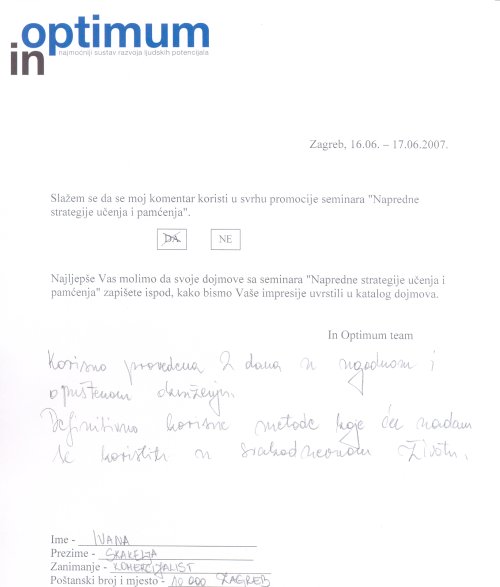 in optimum
najmoćniji sustav razvoja ljudskih potencijala
Zagreb, 16.06. – 17.06.2007.
Slažem se da se moj komentar koristi u svrhu promocije seminara "Napredne
strategije učenja i pamćenja".
DA NE
Najljepše Vas molimo da svoje dojmove sa seminara "Napredne strategije učenja i
pamćenja" zapišete ispod, kako bismo Vaše impresije uvrstili u katalog dojmova.
In Optimum team
Korisno provedena 2 dana u ugodnom i
opuštenom druženju.
Definitivno korisne metode koje ću nadam
se koristiti u svakodnevnom životu.
Ime - IVANA
Prezime - SKAKELJA
Zanimanje - KOMERCIJALIST
Poštanski broj i mjesto - 10 000 ZAGREB